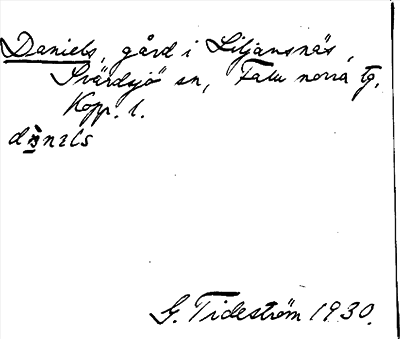 Daniels, gård i Liljansnäs,
Svärdsjö sn, Falu norra tg,
Kopp. l.
G. Tideström 1930.